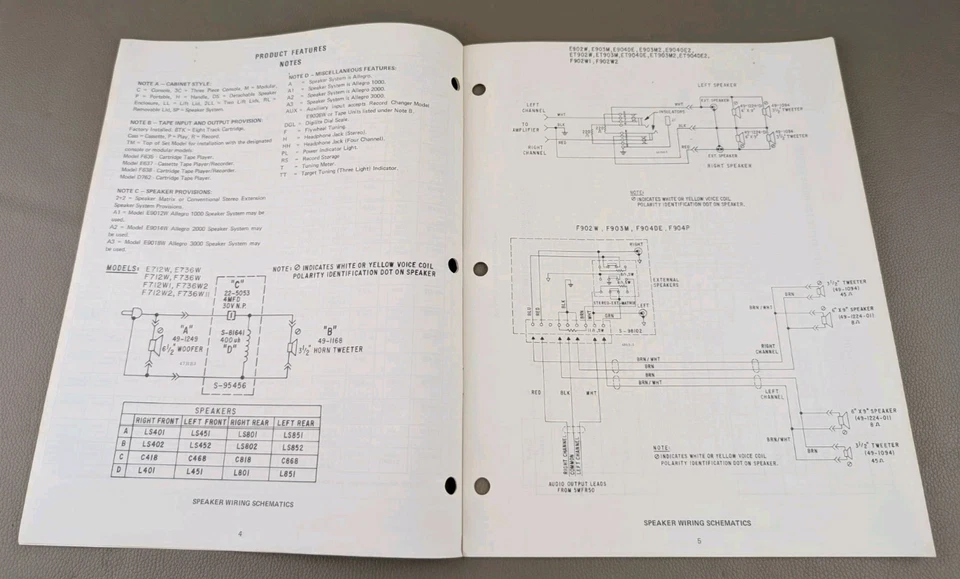 PRODUCT FEATURES
NOTES
NOTE A – CABINET STYLE:
C = Console, 3C = Three Piece Console, M = Modular,
P = Portable, H = Handle, DS = Detachable Speaker
Enclosure, LL = Lift Lid, 2LL = Two Lift Lids, RL =
Removable Lid, SP = Speaker System.
NOTE B – TAPE INPUT AND OUTPUT PROVISION:
Factory Installed: 8TK = Eight Track Cartridge,
Cass = Cassette, P = Play, R = Record.
TM = Top of Set Model for installation with the designated
console or modular models:
Model F636 - Cartridge Tape Player.
Model E637 - Cassette Tape Player/Recorder.
Model F638 - Cartridge Tape Player/Recorder.
Model D762 - Cartridge Tape Player.
NOTE C – SPEAKER PROVISIONS:
2+2 = Speaker Matrix or Conventional Stereo Extension
Speaker System Provisions.
A1 = Model E9012W Allegro 1000 Speaker System may be
used.
A2 = Model E9014W Allegro 2000 Speaker System may
be used.
A3 = Model E9019W Allegro 3000 Speaker System may
be used.
NOTE D – MISCELLANEOUS FEATURES:
A = Speaker System is Allegro.
A1 = Speaker System is Allegro 1000.
A2 = Speaker System is Allegro 2000.
A3 = Speaker System is Allegro 3000.
AUX = Auxiliary Input accepts Record Changer Model
or Tape Units listed under Note B.
DGL = Digilite Dial Scale.
F = Flywheel Tuning.
H = Headphone Jack (Stereo).
HH = Headphone Jack (Four Channel).
PL = Power Indicator Light.
RS = Record Storage
T = Tuning Meter.
TT = Target Tuning (Three Light) Indicator.
MODELS: E712W, E736W
F712W, F736W
F712W1, F736W2
F712W2, F736W11
NOTE: ∅ INDICATES WHITE OR YELLOW VOICE COIL
POLARITY IDENTIFICATION DOT ON SPEAKER
"C"
22-5053
4MFD
30V N.P.
"A"
49-1249
6 1/2" WOOFER
S-81641
400uh
"D"
"B"
49-1168
3 1/2" HORN TWEETER
S-95456
SPEAKERS
RIGHT FRONT LEFT FRONT RIGHT REAR LEFT REAR
A LS401 LS451 LS801 LS851
B LS402 LS452 LS802 LS852
C C418 C468 C818 C868
D L401 L451 L801 L851
SPEAKER WIRING SCHEMATICS
4
E902W, E903M, E904DE, E903M2, E904DE2
ET902W, ET903M, ET904DE, ET903M2, ET904DE2,
F902W1, F902W2
LEFT SPEAKER
LEFT
CHANNEL
TO
AMPLIFIER
RIGHT
CHANNEL
WHT
BLK
RED
WHT
BLK
RED
EXT. SPEAKER
EXT. SPEAKER
RIGHT SPEAKER
NOTE:
∅ INDICATES WHITE OR YELLOW VOICE COIL
POLARITY IDENTIFICATION DOT ON SPEAKER.
F902W, F903M, F904DE, F904P
RIGHT
EXTERNAL
SPEAKERS
LEFT
STEREO-EXT-MATRIX
BLU
RED
BLK
BRN
WHT
GRN
S-98102
BRN/WHT
BRN
BRN
BRN/WHT
RED
BLK
WHT
RIGHT CHANNEL
COMMON
LEFT CHANNEL
AUDIO OUTPUT LEADS
FROM 5MFR50
BRN/WHT
BRN
3 1/2" TWEETER
(49-1094)
45Ω
6" X 9" SPEAKER
(49-1224-01)
8Ω
RIGHT
CHANNEL
LEFT
CHANNEL
6" X 9" SPEAKER
(49-1224-01)
8Ω
BRN/WHT
BRN
3 1/2" TWEETER
(49-1094)
45Ω
NOTE:
∅ INDICATES WHITE OR YELLOW VOICE COIL
POLARITY IDENTIFICATION DOT ON SPEAKER.
SPEAKER WIRING SCHEMATICS
5